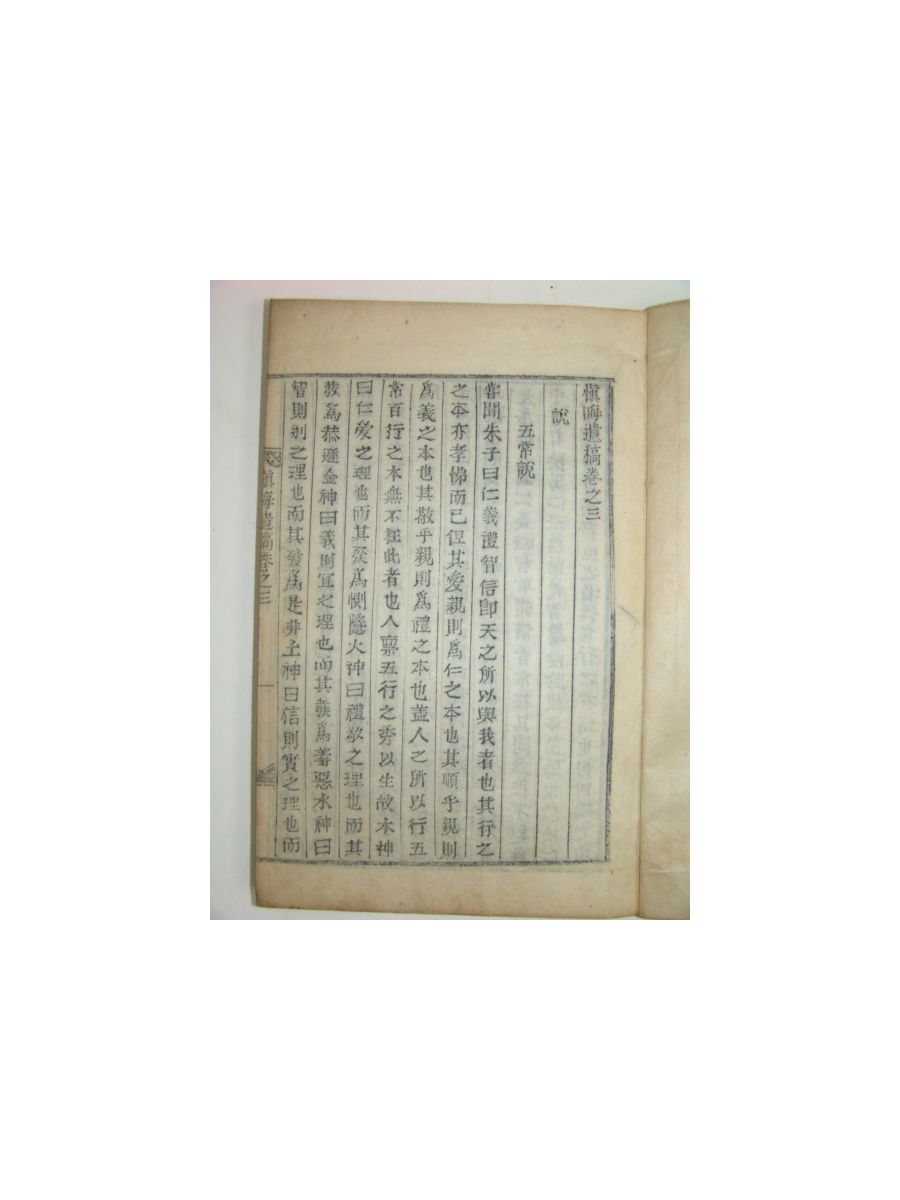 愼晦遺稿卷之三
說
五常說
嘗聞朱子曰仁義禮智信卽天之所以與我者也其行之
之本亦孝悌而已但其愛親則爲仁之本也其順乎親則
爲義之本也其敬乎親則爲禮之本也盖人之所以行五
常百行之本無不在此者也人禀五行之秀以生故木神
曰仁愛之理也而其發爲惻隱火神曰禮敬之理也而其
發爲恭遜金神曰義則宜之理也而其發爲羞惡水神曰
智則別之理也而其發爲是非土神曰信則實之理也而
愼晦遺稿卷之三
一